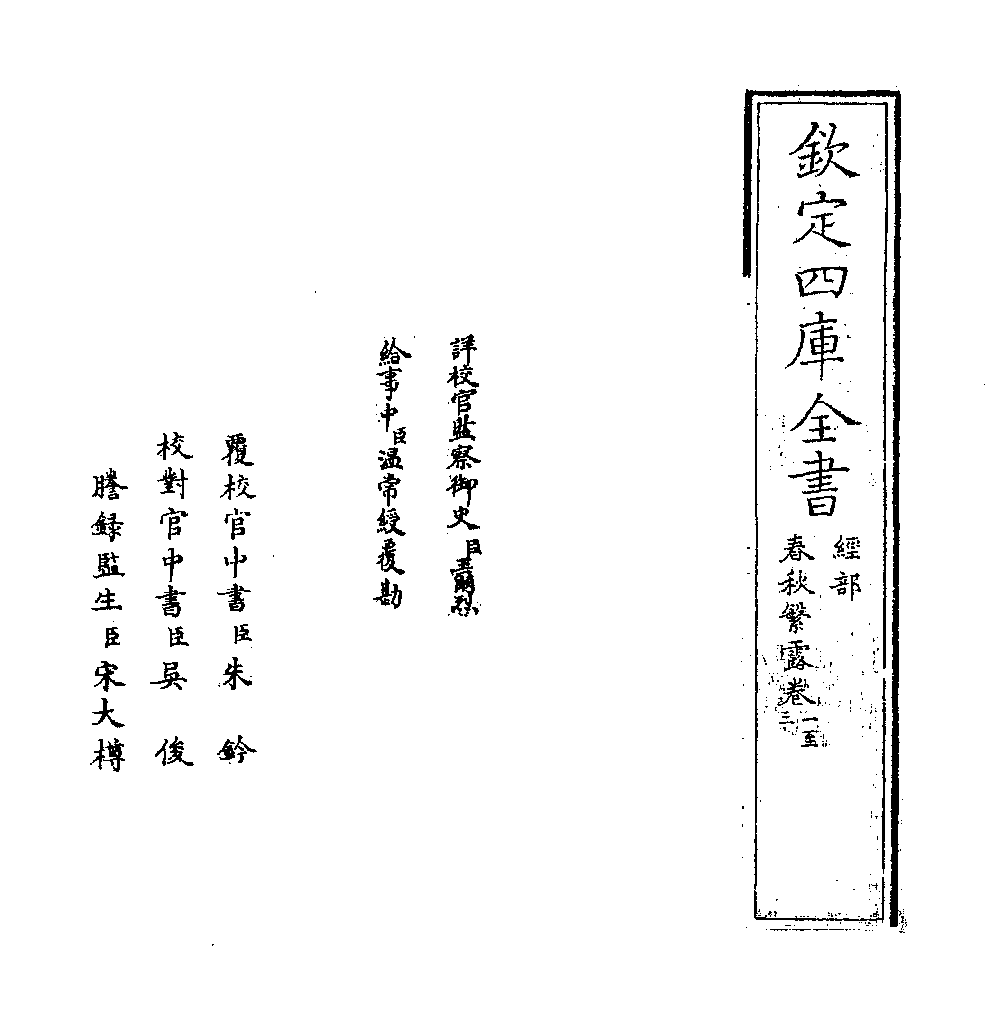 欽定四庫全書
經部
春秋繁露卷一至三
詳校官監察御史臣
給事中臣溫常綬覆勘
覆校官中書臣朱鈐
校對官中書臣吳俊
謄錄監生臣宋大樽